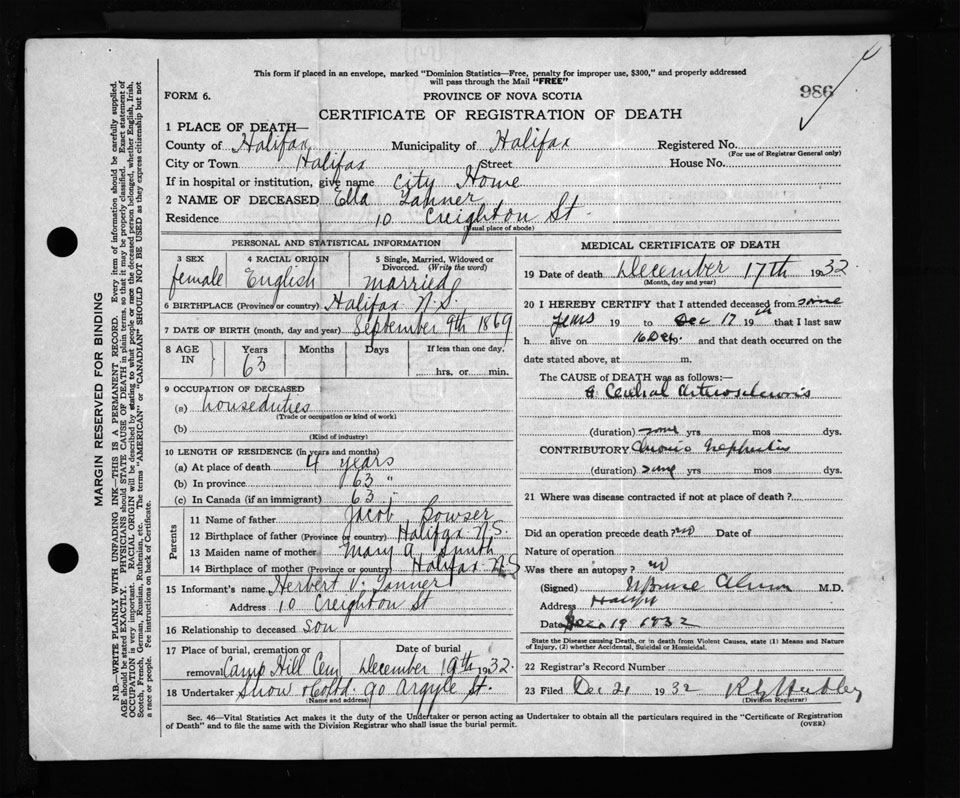 This form if placed in an envelope, marked "Dominion Statistics—Free, penalty for improper use, $300," and properly addressed
will pass through the Mail "FREE"
986
FORM 6.
PROVINCE OF NOVA SCOTIA
CERTIFICATE OF REGISTRATION OF DEATH
1 PLACE OF DEATH—
County of Halifax Municipality of Halifax Registered No.
(For use of Registrar General only)
City or Town Halifax Street House No.
If in hospital or institution, give name City Home
2 NAME OF DECEASED Ella Tanner
Residence 10 Creighton St.
(Usual place of abode)
PERSONAL AND STATISTICAL INFORMATION
3 SEX 4 RACIAL ORIGIN 5 Single, Married, Widowed or
Divorced. (Write the word)
female English married
6 BIRTHPLACE (Province or country) Halifax N.S.
7 DATE OF BIRTH (month, day and year) September 9th 1869
8 AGE IN Years Months Days If less than one day,
63 hrs. or min.
9 OCCUPATION OF DECEASED
(a) houseduties
(Trade or occupation or kind of work)
(b)
(Kind of industry)
10 LENGTH OF RESIDENCE (in years and months)
(a) At place of death 4 years
(b) In province 63 "
(c) In Canada (if an immigrant) 63 "
Parents
11 Name of father Jacob Bowser
12 Birthplace of father (Province or country) Halifax N.S
13 Maiden name of mother Mary A. Smith
14 Birthplace of mother (Province or country) Halifax N.S
15 Informant's name Herbert V. Tanner
Address 10 Creighton St
16 Relationship to deceased son
17 Place of burial, cremation or Date of burial
removal Camp Hill Cem December 19th 1932.
18 Undertaker Snow & Co Ltd. 90 Argyle St.
(Name and address)
MEDICAL CERTIFICATE OF DEATH
19 Date of death December 17th 1932.
(Month, day and year)
20 I HEREBY CERTIFY that I attended deceased from some
years 19 to Dec 17th 19 that I last saw
h alive on 16 Dec. and that death occurred on the
date stated above, at m.
The CAUSE of DEATH was as follows:—
Arteriosclerosis
(duration) some yrs mos dys.
CONTRIBUTORY Chronic Nephritis
(duration) some yrs mos dys.
21 Where was disease contracted if not at place of death?
Did an operation precede death no Date of
Nature of operation
Was there an autopsy? no
(Signed) Almon M.D.
Address Halifax
Date Dec 19 1932
State the Disease causing Death, or in death from Violent Causes, state (1) Means and Nature
of Injury, (2) whether Accidental, Suicidal or Homicidal.
22 Registrar's Record Number
23 Filed Dec 21 1932
(Division Registrar)
Sec. 46—Vital Statistics Act makes it the duty of the Undertaker or person acting as Undertaker to obtain all the particulars required in the "Certificate of Registration
of Death" and to file the same with the Division Registrar who shall issue the burial permit. (OVER)
MARGIN RESERVED FOR BINDING
N.B.—WRITE PLAINLY WITH UNFADING INK—THIS IS A PERMANENT RECORD. Every item of information should be carefully supplied.
AGE should be stated EXACTLY. PHYSICIANS should STATE CAUSE OF DEATH in plain terms, so that it may be properly classified. Exact statement of
OCCUPATION is very important. RACIAL ORIGIN will be described by stating to what people or race the deceased person belonged, whether English, Irish,
Scotch, French, German, Russian, Ruthenian, etc. The terms "AMERICAN" or "CANADIAN" SHOULD NOT BE USED as they express citizenship but not
a race or people. Fee instructions on back of Certificate.